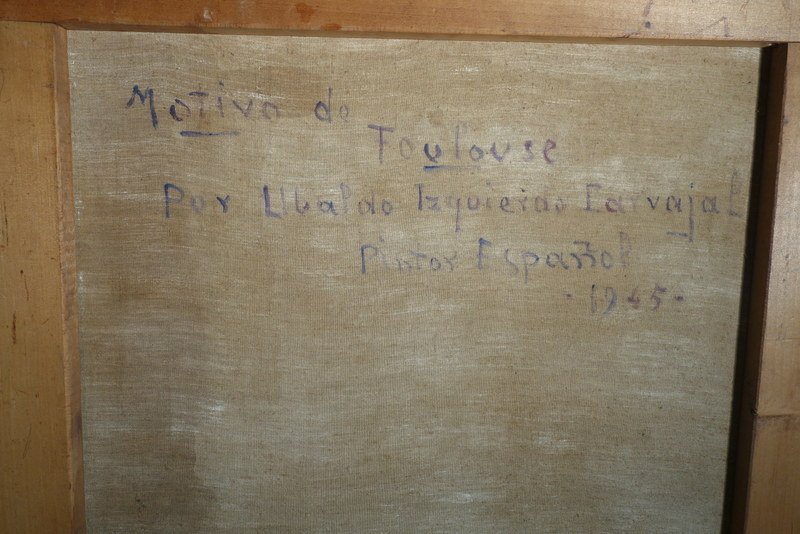 Motivo de
Toulouse
Por Ubaldo Izquierdo Carvajal
Pintor Español
- 1945 -